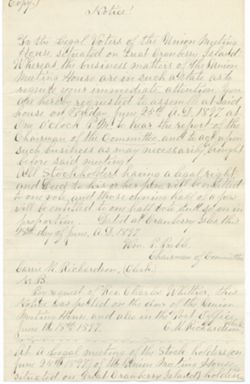 Copy
Notice!
To the Legal Voters of the Union Meeting
House situated on Great Cranberry Island.
Whereas the business matters of the Union
Meeting House are in such a state as to
require your immediate attention, You
are hereby requested to assemble at said
house on Friday June 25th A.D. 1897 at
One O'clock P.M. to hear the report of the
Chairman of the Committee and to act upon
such business as may necessarily brought
before said meeting.
All Stockholders having a legal right
and Deed to his or her pew will be entitled
to one vote, and those owning half of a pew
will be entitled to one half vote in
proportion. Dated at Cranberry Isles this
18th day of June, A.D. 1897.
Wm. P. Preble
Chairman of Committee
Carrie M. Richardson, Clerk
N.B.
By request of Rev. Charles Whittier, this
Notice was posted on the door of the Union
Meeting House and also in the Post Office,
June 18th 1897. C.M. Richardson
At a legal meeting of the Stock holders on
June 25th 1897 of the Union Meeting House
situated on Great Cranberry Island, holding